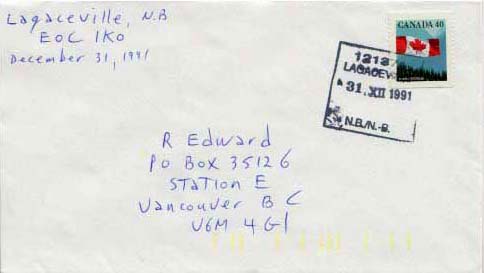 Lagaceville, N.B
EOC 1KO
December 31, 1991
CANADA 40
1213
LAGACEV
31. XII 1991
N.B./N.-B.
R Edward
PO BOX 35126
STATION E
Vancouver B C
V6M 4G1